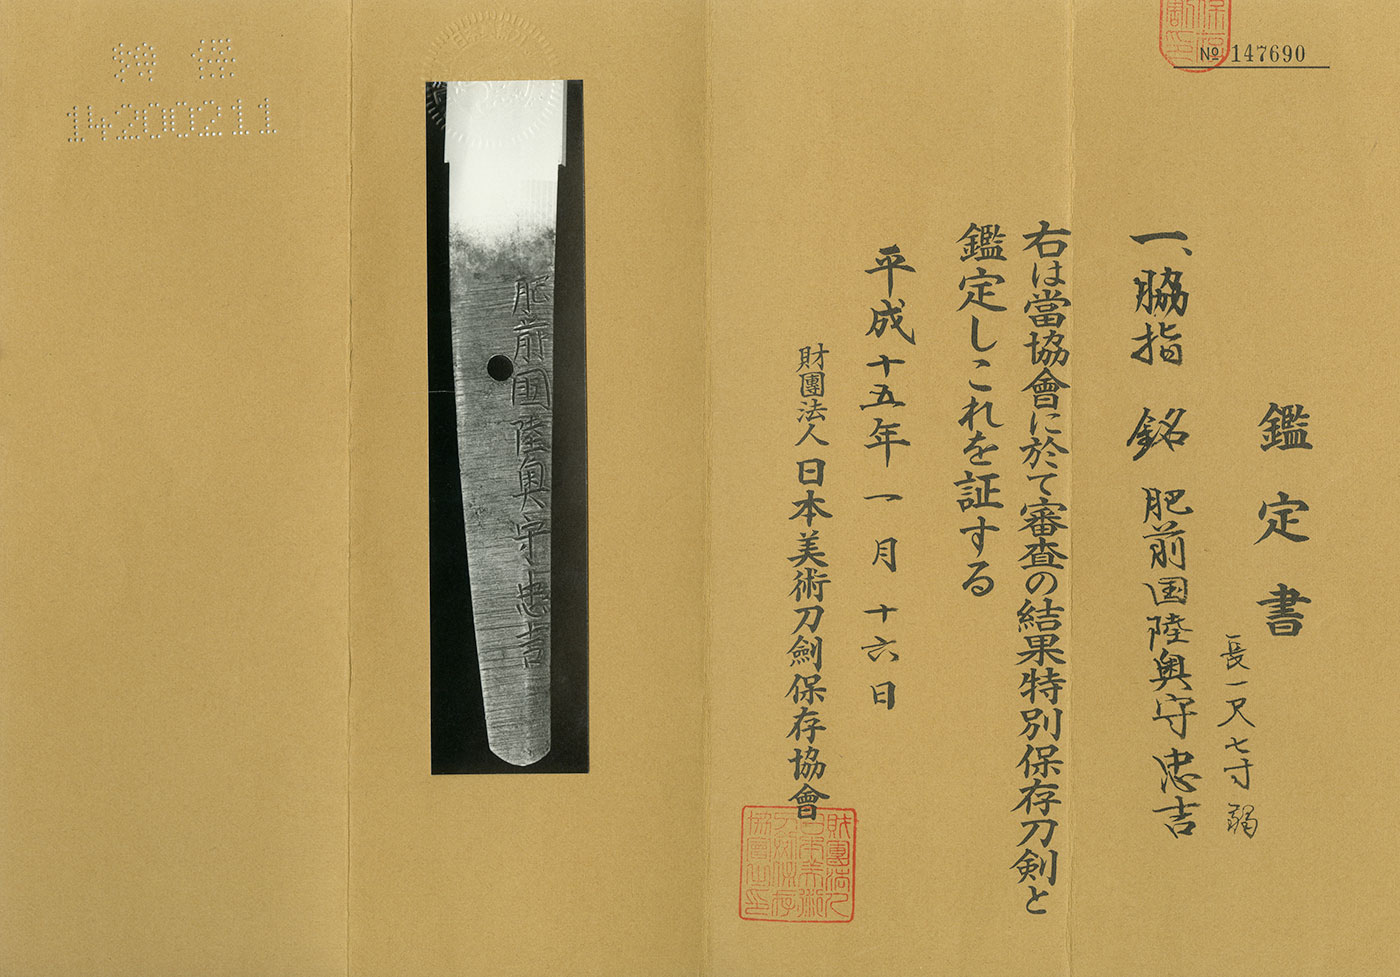 № 147690
鑑定書
長一尺七寸弱
一、脇指 銘 肥前国陸奥守忠吉
右は當協會に於て審査の結果特別保存刀剣と
鑑定しこれを証する
平成十五年一月十六日
財團法人日本美術刀劍保存協會
肥前國陸奥守忠吉
14200211